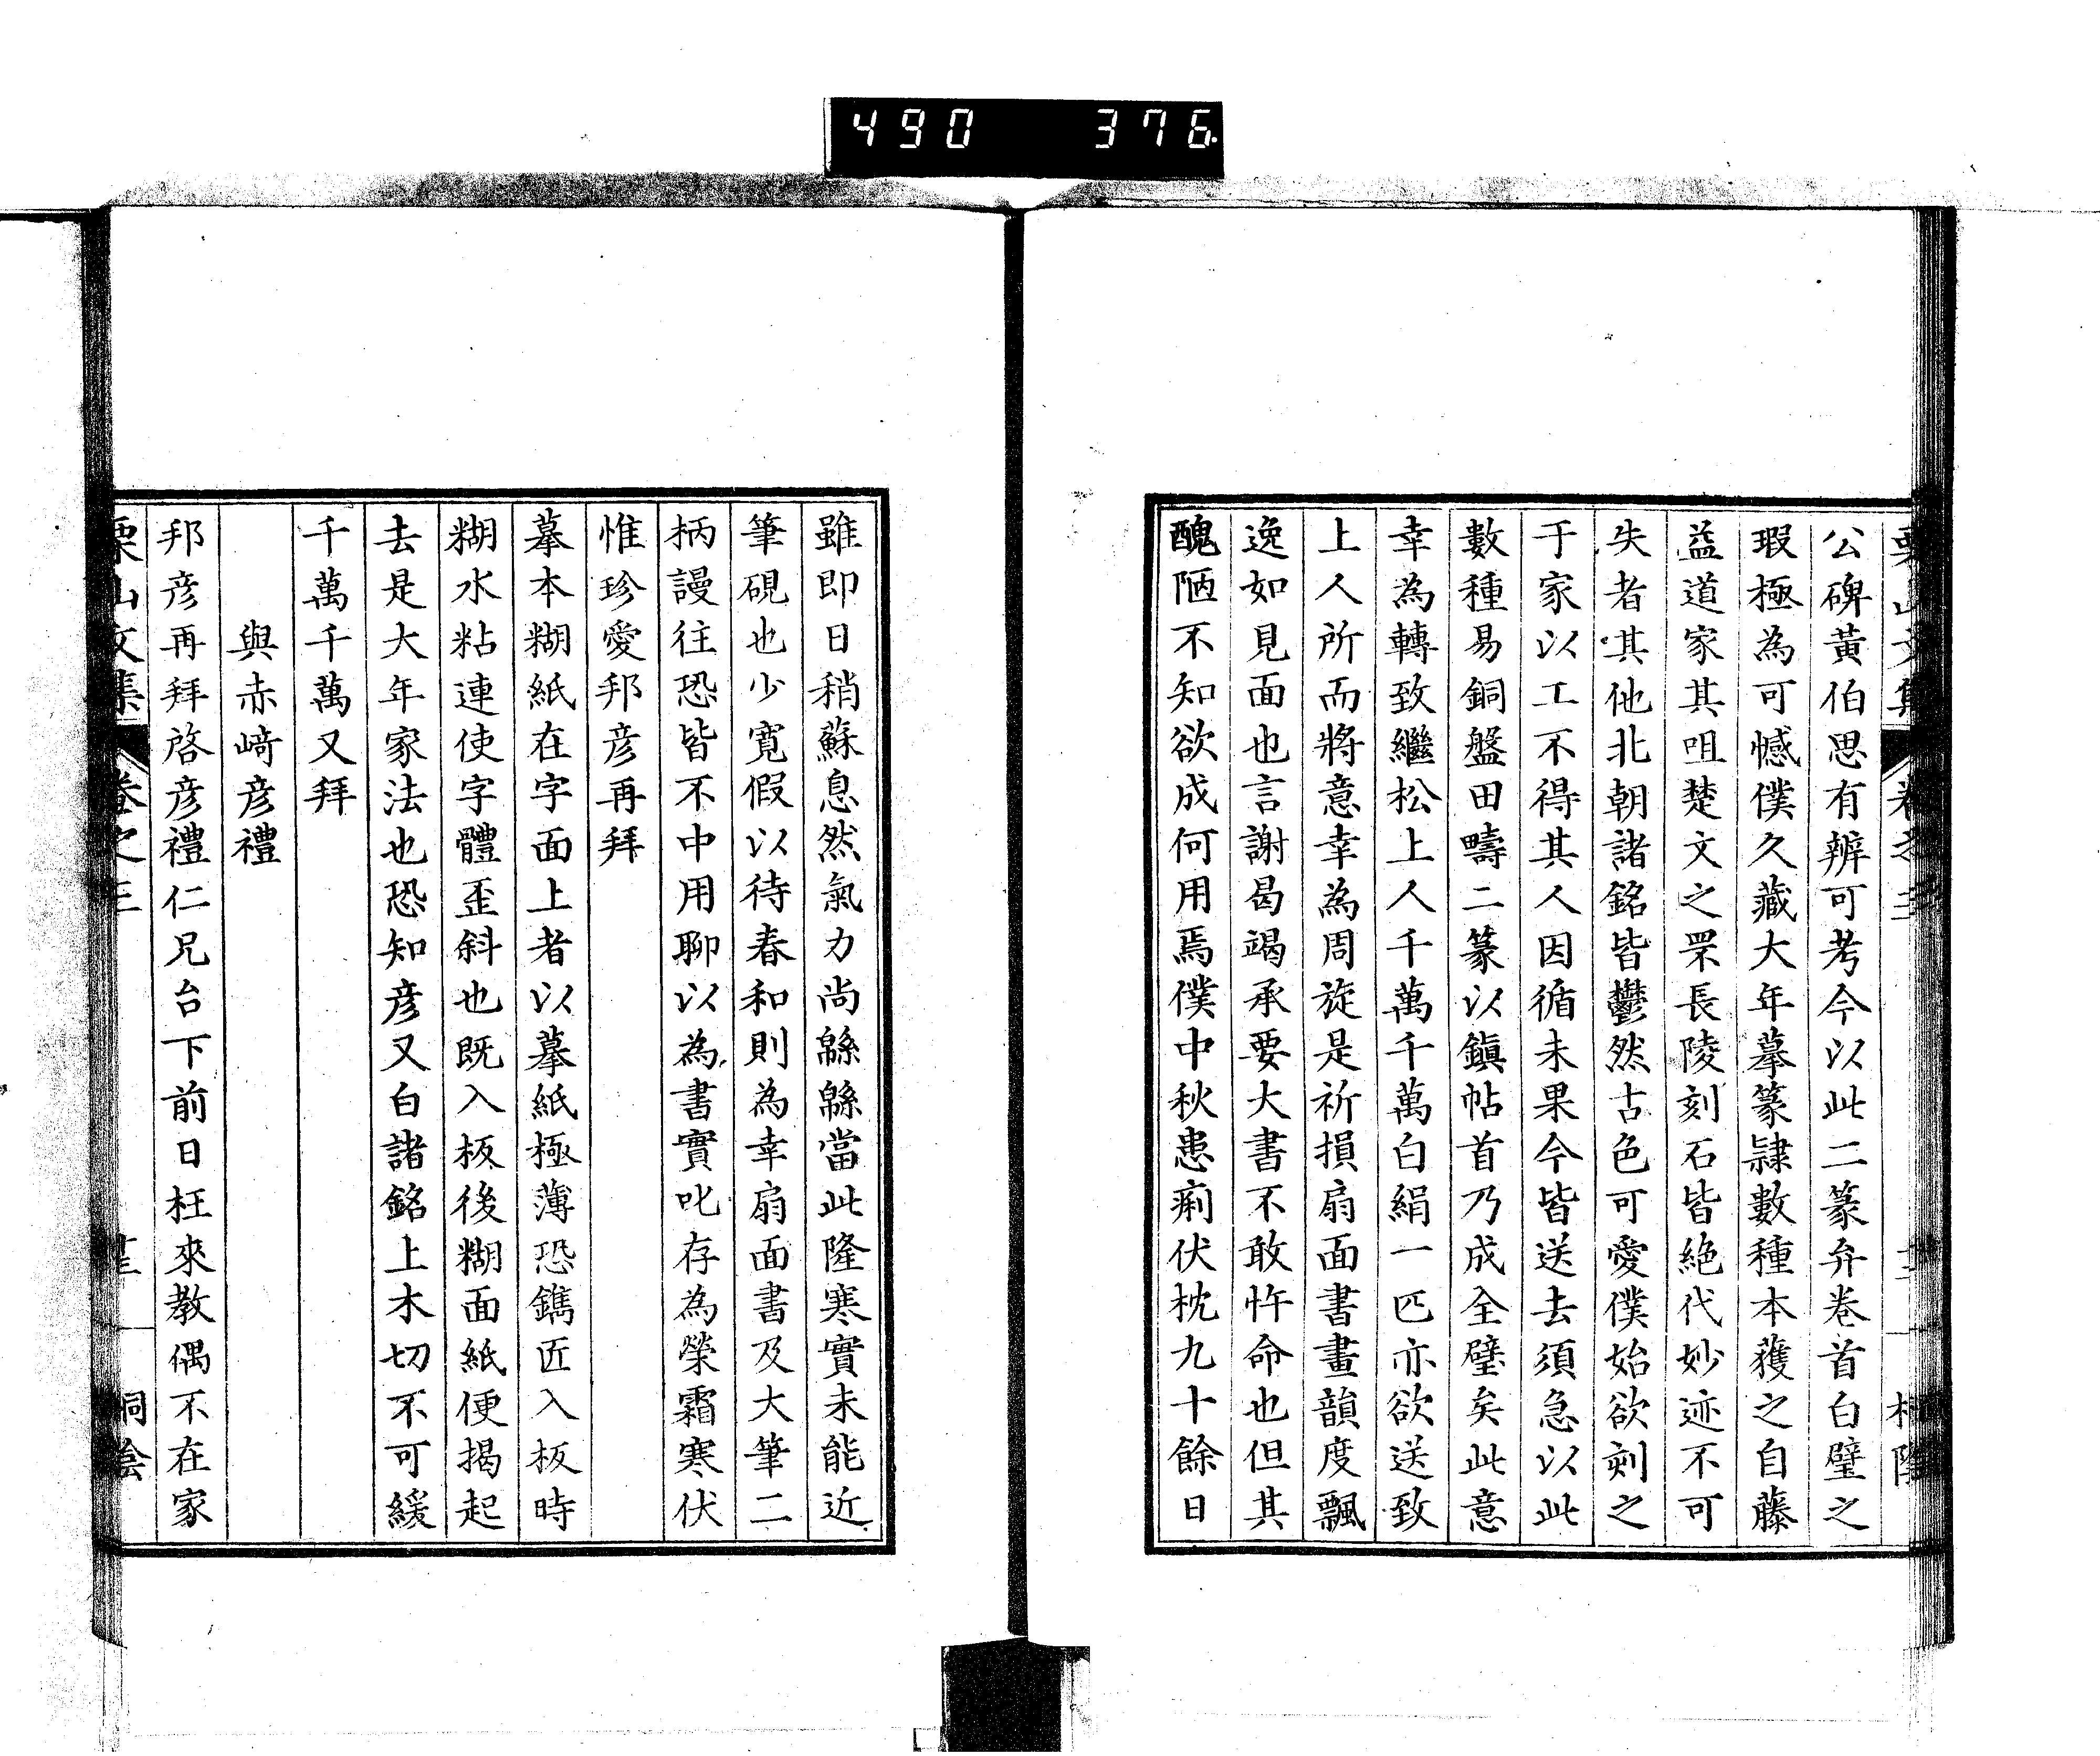 490 376
公碑黃伯思有辨可考今以此二篆弁卷首白璧之
瑕極為可憾僕久藏大年摹篆隷數種本蒦之自藤
益道家其咀楚文之罘長陵刻石皆絶代妙迹不可
失者其他北朝諸銘皆鬱然古色可愛僕始欲刻之
于家以工不得其人因循未果今皆送去須急以此
數種易銅盤田疇二篆以鎮帖首乃成全璧矣此意
幸為轉致繼松上人千萬千萬白絹一匹亦欲送致
上人所而將意幸為周旋是祈損扇面書畫韻度飄
逸如見面也言謝曷竭承要大書不敢忤命也但其
醜陋不知欲成何用焉僕中秋患痢伏枕九十餘日
雖即日稍蘇息然氣力尚緜緜當此隆寒實未能近
筆硯也少寛假以待春和則為幸扇面書及大筆二
柄謾往恐皆不中用聊以為書實叱存為榮霜寒伏
惟珍愛邦彦再拜
摹本糊紙在字面上者以摹紙極薄恐鐫匠入板時
糊水粘連使字體歪斜也既入板後糊面紙便揭起
去是大年家法也恐知彦又白諸銘上木切不可緩
千萬千萬又拜
與赤﨑彦禮
邦彦再拜啓彦禮仁兄台下前日枉來教偶不在家
栗山文集 卷之三